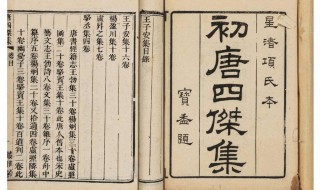 星渚項氏本
初唐四傑集
王子安集目錄
王子安集十六卷
楊盈川集十卷
盧昇之集七卷
駱丞集四卷
唐書經籍志王勃集三十卷楊炯集三十卷盧照
鄰集二十卷駱賓王集十卷此唐人舊本也宋史
藝文志王勃詩八卷文集三十卷雜序一卷舟中
纂序五卷楊炯集二十卷又拾遺四卷盧照鄰集
十卷幽憂子三卷駱賓王集十卷百道判二卷此